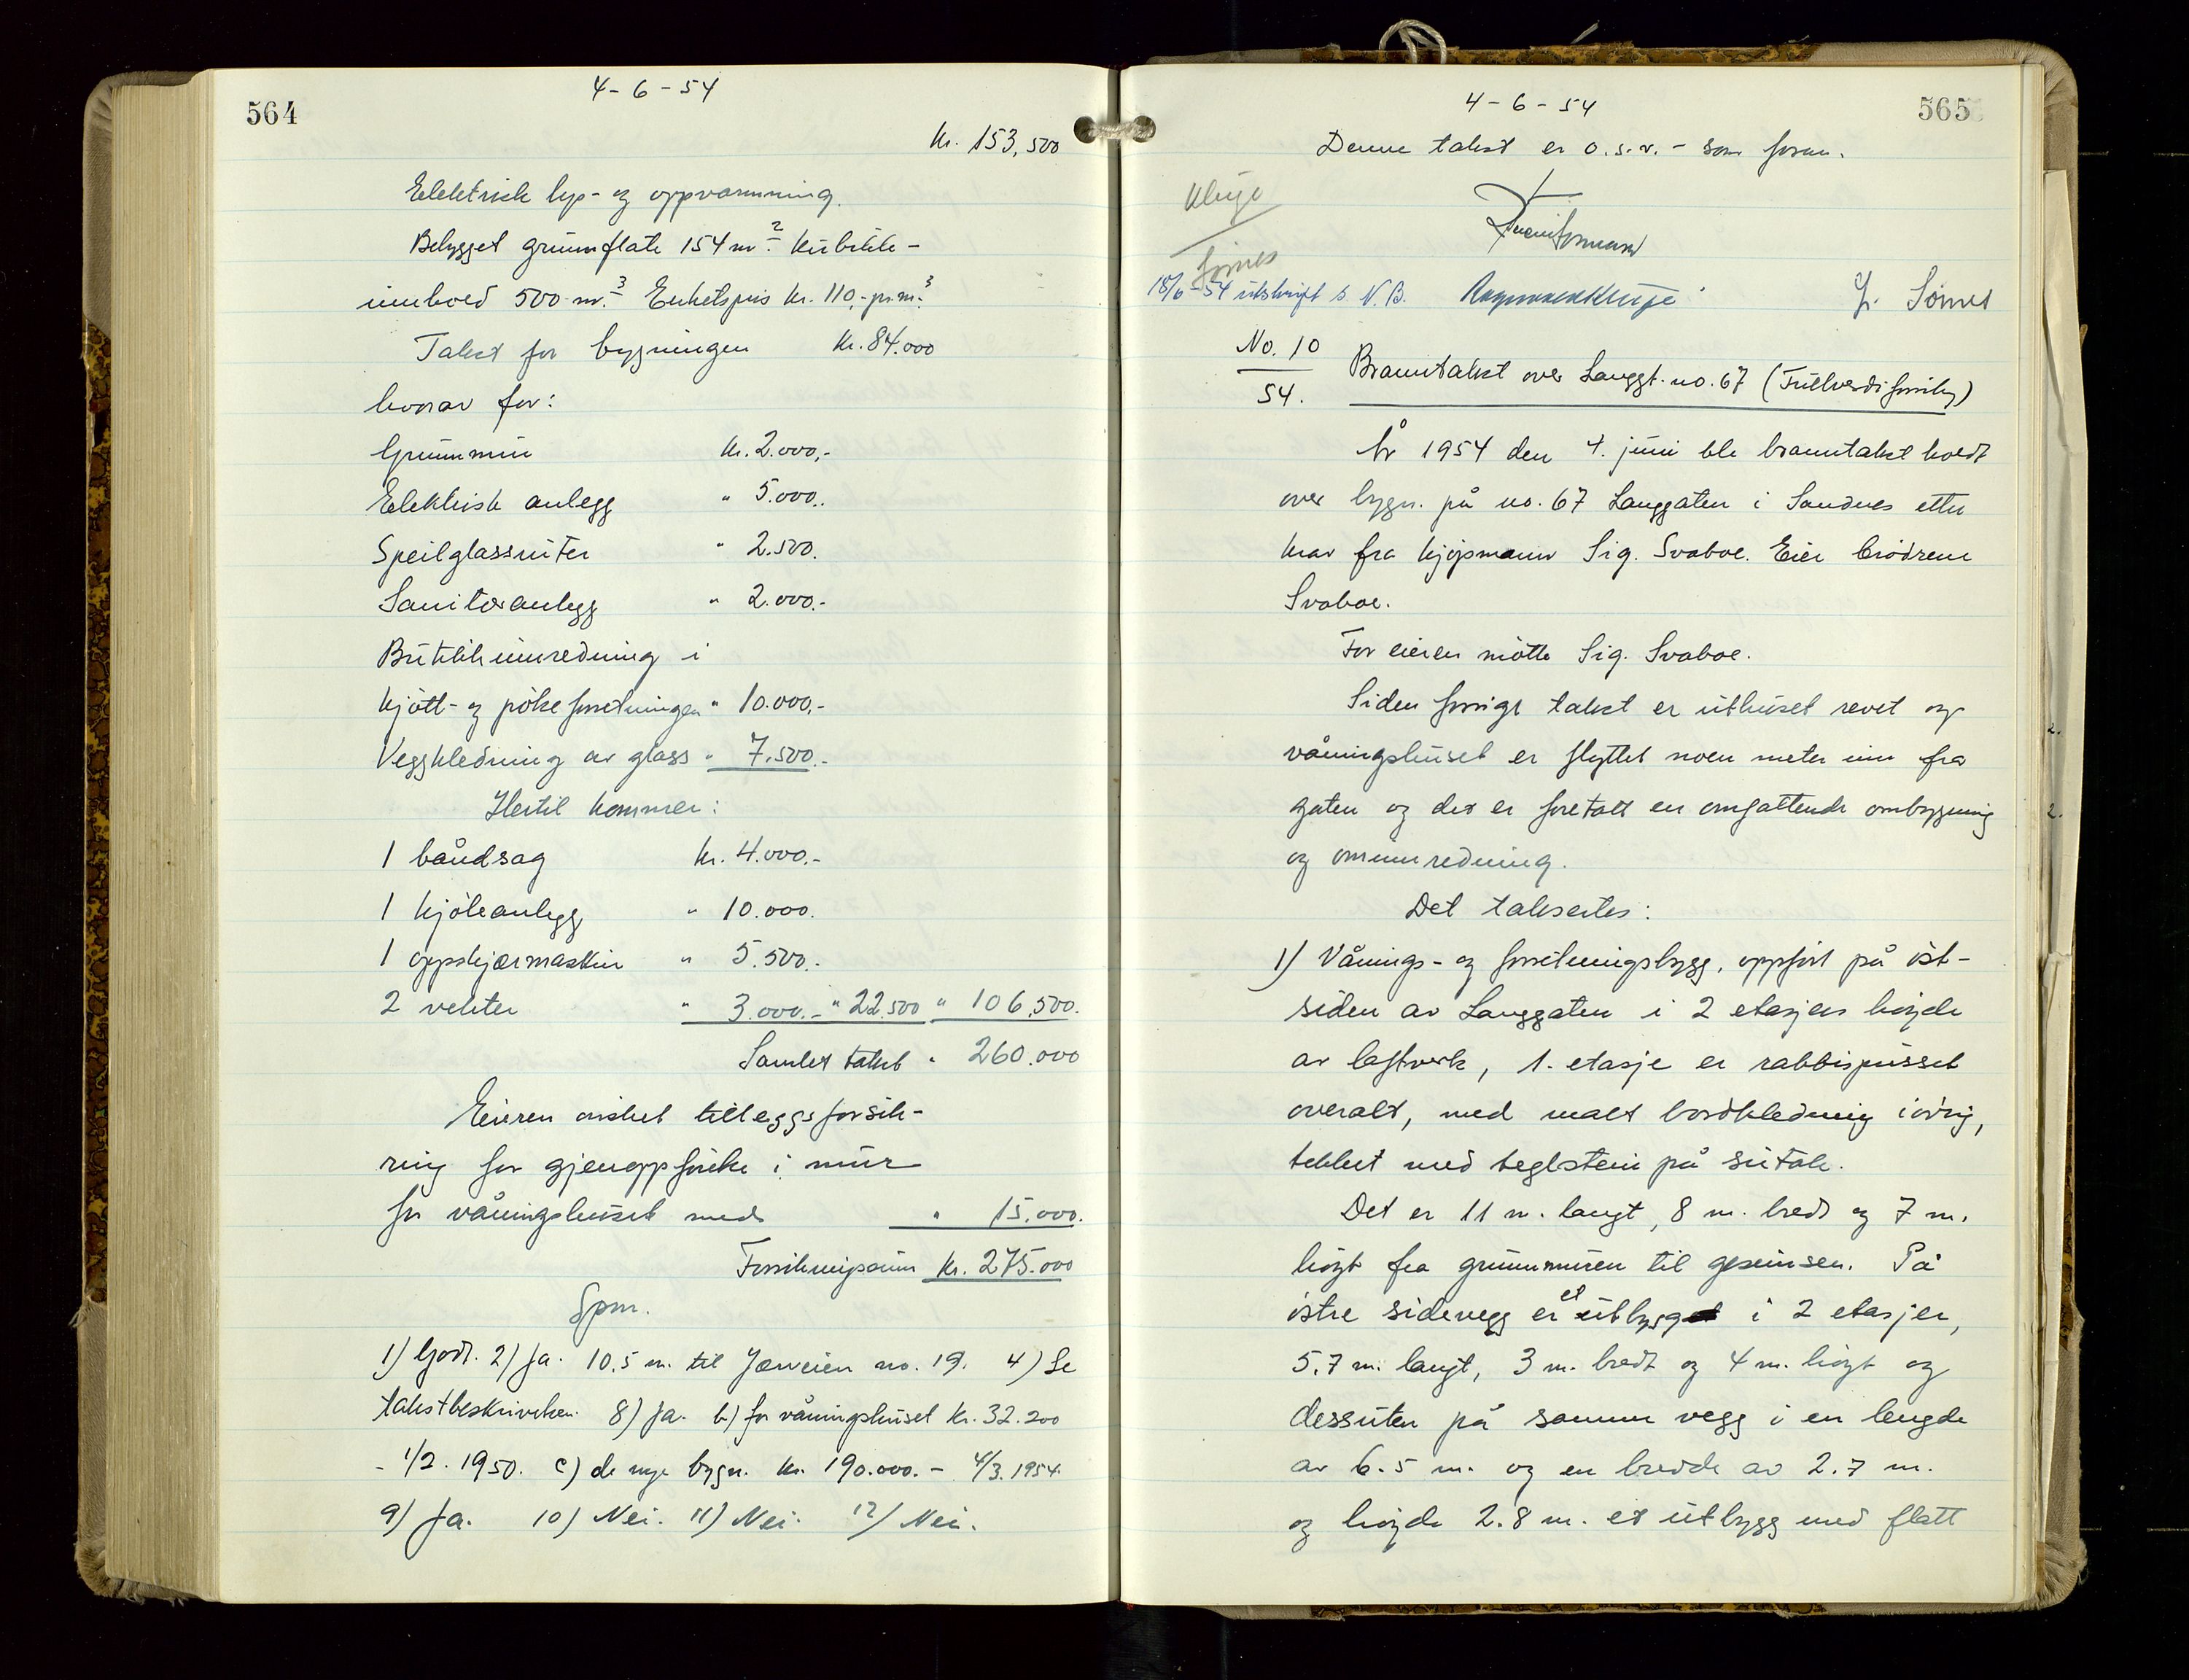 564
4-6-54
Kr. 153,500
Elektrisk lys- og oppvarmning.
Bebygget grunnflate 154 m². Kubikk-
innhold 500 m³. Enhetspris kr. 110,- pr. m.³
Takst for bygningen Kr. 84.000
hvorav for:
Grunnmur Kr. 2.000,-
Elektrisk anlegg " 5.000..
Speilglassruter " 2.500.
Sanitæranlegg " 2.000.-
Butikkinnredning i
kjött- og pölseforretningen " 10.000,-
Veggkledning av glass " 7.500.-
Hertil kommer:
1 båndsag kr. 4.000.-
1 kjöleanlegg " 10.000.
1 oppskjærmaskin " 5.500.-
2 vekter " 3.000.- " 22.500 " 106,500.
Samlet takst " 260.000
Eieren önsket tilleggsforsik-
ring for gjenoppförelse i mur
for våningshuset med " 15.000.
Forsikringssum kr. 275.000
Spm.
1) Godt. 2) Ja. 10.5 m. til Jærveien no. 19. 4) Se
takstbeskrivelsen. 8) Ja. b) for våningshuset kr. 32.200
- 1/2. 1950. c) de nye bygn. kr. 190.000.- 4/3. 1954.
9) Ja. 10) Nei. 11) Nei. 12) Nei.
565
4-6-54
Denne takst er o.s.v. - som foran.
Kluge
Sömes
18/6-54 utskrift s. N.B.
Sömes
No. 10
54.
Branntakst over Langgt. no. 67 (Fullverdiforsikr)
År 1954 den 4. juni ble branntakst holdt
over bygn. på no. 67 Langgaten i Sandnes etter
krav fra kjöpmann Sig. Svaboe. Eier brödrene
Svaboe.
For eieren mötte Sig. Svaboe.
Siden forrige takst er uthuset revet og
våningshuset er flyttet noen meter inn fra
gaten og det er foretatt en omfattende ombygning
og ominnredning.
Det takseres:
1) Vånings- og forretningsbygg, oppfört på öst-
siden av Langgaten i 2 etasjers höyde
av laftverk, 1. etasje er rabbispusset
overalt, med malt bordkledning iövrig,
tekket med teglstein på sutak.
Det er 11 m. langt, 8 m. bredt og 7 m.
höyt fra grunnmuren til gesimsen. På
östre sidevegg er et utbygg i 2 etasjer,
5.7 m. langt, 3 m. bredt og 4 m. höyt og
dessuten på samme vegg i en lengde
av 6.5 m. og en bredde av 2.7 m.
og höyde 2.8 m. et utbygg med flatt
2.
2.